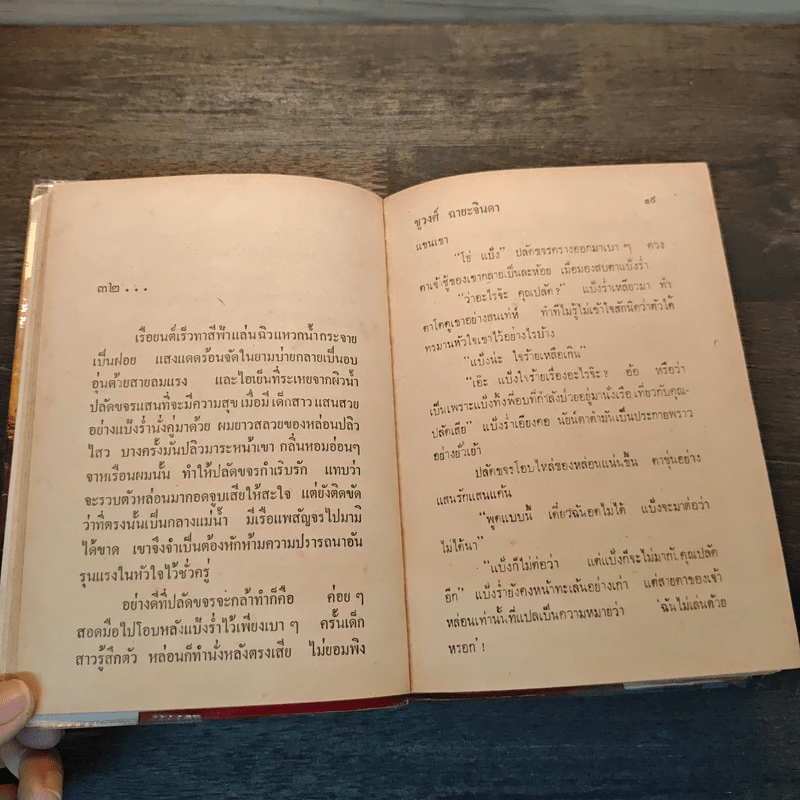 ๓๒...
เรือยนต์เร็วทาสีฟ้าแล่นฉิวแหวกน้ำกระจาย
เป็นฝอย แสงแดดร้อนจัดในยามบ่ายกลายเป็นอบ
อุ่นด้วยสายลมแรง และไอเย็นที่ระเหยจากผิวน้ำ
ปลัดขจรแสนที่จะมีความสุข เมื่อมีเด็กสาว แสนสวย
อย่างแบ๊งร่ำนั่งคู่มาด้วย ผมยาวสลวยของหล่อนปลิว
ไสว บางครั้งมันปลิวมาระหน้าเขา กลิ่นหอมอ่อนๆ
จาหเรือนผมนั้น ทำให้ปลัดขจรกำเริบรัก แทบว่า
จะรวบตัวหล่อนมากอดจูบเสียให้สะใจ แต่ยังติดขัด
ว่าที่ตรงนั้นเป็นกลางแม่น้ำ มีเรือแพสัญจรไปมามิ
ได้ขาด เขาจึงจำเป็นต้องหักห้ามความปรารถนาอัน
รุนแรงในหัวใจไว้ชั่วครู่
อย่างดีที่ปลัดขจรจะกล้าทำก็คือ ค่อย ๆ
สอดมือไปโอบหลังแบ๊งร่ำไว้เพียงเบา ๆ ครั้นเด็ก
สาวรู้สึกตัว หล่อนก็ทำนั่งหลังตรงเสีย ไม่ยอมพิง
ชูวงศ์ ฉายะจินดา ๑๙
แขนเขา
“โธ่ แบ๊ง” ปลัดขจรครางออกมาเบา ๆ ดวง
ตาเจ้าชู้ของเขากลายเป็นละห้อย เมื่อมองสบตาแบ๊งร่ำ
“ว่าอะไรจ๊ะ คุณปลัด?” แบ๊งร่ำเหลียวมา ทำ
ตาโตดูเขาอย่างสนเท่ห์ ทำทีไม่รู้ไม่เข้าใจสักนิดว่าตัวได้
ทรมานหัวใจเขาไว้อย่างไรบ้าง
“แบ๊งน่ะ ใจร้ายเหลือเกิน”
“เอ๊ะ แบ๊งใจร้ายเรื่องอะไรจ๊ะ? อ้อ หรือว่า
เป็นเพราะแบ๊งทิ้งพี่อบที่กำลังป่วยอยู่มานั่งเรือเที่ยวกับคุณ-
ปลัดเสีย” แบ๊งร่ำเอียงคอ นัยน์ตาดำมันเป็นประกายพราว
อย่างยั่วเย้า
ปลัดขจรโอบไหล่ของหล่อนแน่นขึ้น ตาขุ่นอย่าง
แสนรักแสนแค้น
“พูดแบบนี้ เดี๋ยวฉันอดไม่ได้ แบ๊งจะมาต่อว่า
ไม่ได้นา”
“แบ๊งก็ไม่ต่อว่า แต่แบ๊งก็จะไม่มากับคุณปลัด
อีก” แบ๊งร่ำยังคงหน้าทะเล้นอย่างเก่า แต่สายตาของเจ้า
หล่อนเท่านั้นที่แปลเป็นความหมายว่า ‘ฉันไม่เล่นด้วย
หรอก’!